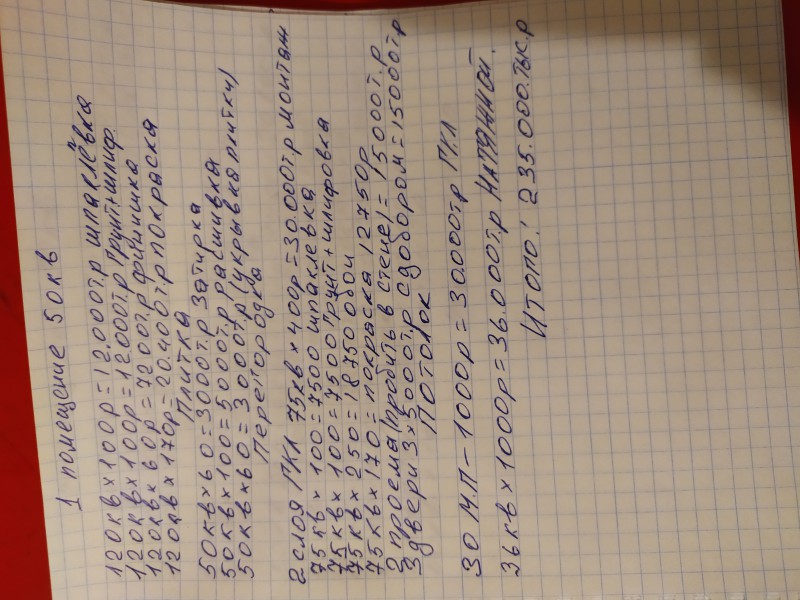 1 помещение 50кв
120кв х 100р = 12.000т.р шпаклёвка
120кв х 100р = 12000т.р Грунт+шлиф.
120кв х 60р = 7200т.р финишка
120кв х 170р = 20.400т.р покраска
Плитка
50кв х 60 = 3000т.р Затирка
50кв х 100 = 5000т.р расшивка
50кв х 60 = 3000т.р (укрывка плитки)
Перегородка
2 слоя ГКЛ 75кв х 400р = 30.000т.р монтаж
75кв х 100 = 7500 шпаклевка
75кв х 100 = 7500 Грунт+шлифовка
75кв х 250 = 18750 обои
75кв х 170 = покраска 12750р
2 проема (пробить в стене) = 15000т.р
3 двери 3 х 5000т.р с добором = 15000т.р
Потолок
30 м.п - 1000р = 30.000т.р ГКЛ
36кв х 1000р = 36.000т.р НАТЯЖНОЙ.
Итого: 235.000.тыс.р